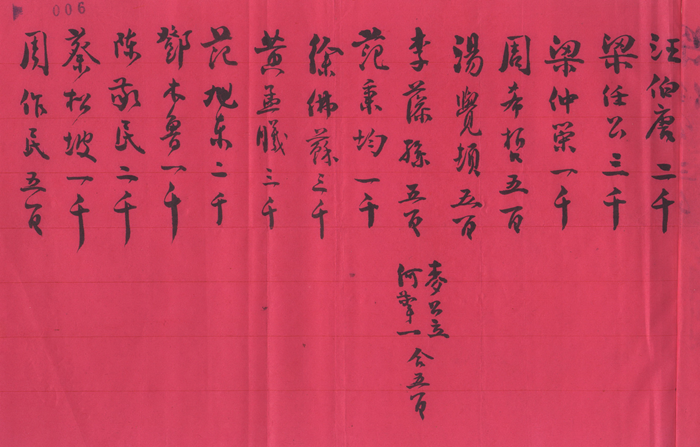 006
汪伯唐二千
梁任公三千
梁仲策一千
周希哲五百
湯覺頓五百
李藻孫五百
麥公立
何擎一
合五百
范秉均一千
徐佛蘇三千
黃孟曦三千
范旭東二千
鄧木魯一千
陈敬民二千
蔡松坡一千
周作民五百